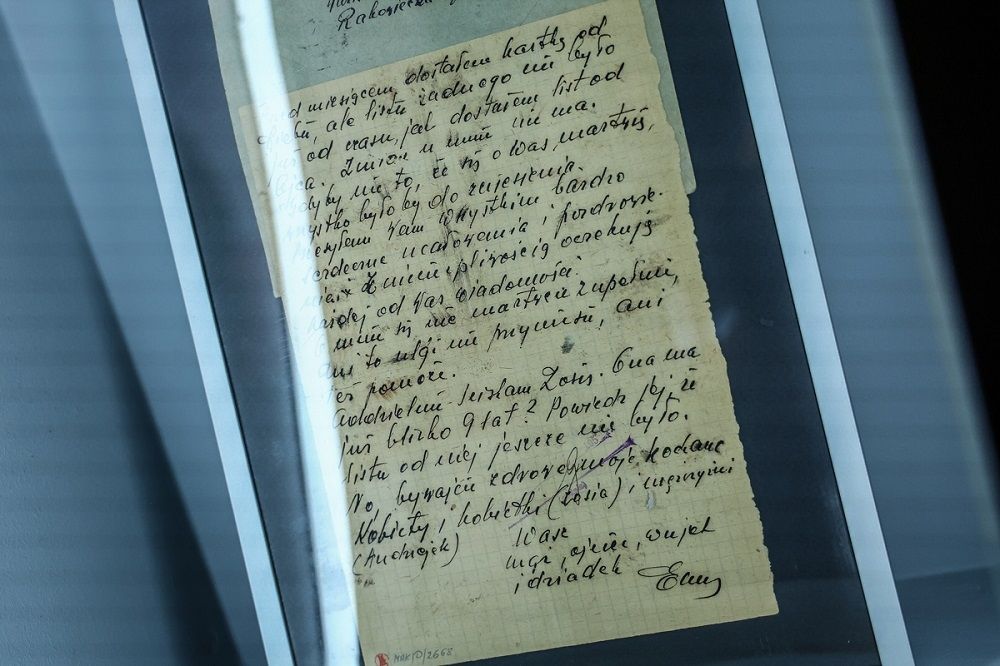 Rakowiecka
miesiącem dostałem kartkę od
ale listu żadnego nie było
od czasu, jak dostałem list od
Ojca. Zmian u mnie nie ma.
Gdyby nie to, że się o Was martwię,
byłoby do zniesienia.
Przesyłam Wam wszystkim bardzo
serdeczne ucałowania i pozdrowie
nia. Z niecierpliwością oczekuję
od Was wiadomości.
mnie się nie martwcie zupełnie,
ani to ulgi nie przyniesie, ani
też pomoże.
Oddzielnie ściskam Zosię. Ona ma
już blisko 9 lat? Powiedz jej, że
listu od niej jeszcze nie było.
No, bywajcie zdrowe moje kochane
Kobiety, i kobietki (Zosia) i mężczyźni
(Andrzejek) Wasz
mąż, ojciec, wujek
i dziadek
MRK/O/2668